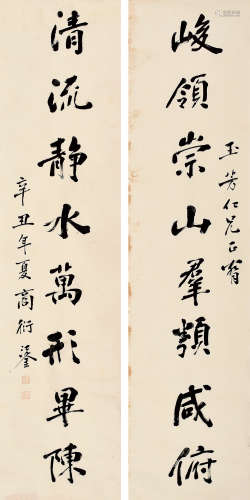 峻領崇山羣類咸俯
玉芳仁兄正腕
清流靜水萬形畢陳
辛丑年夏商衍鎏